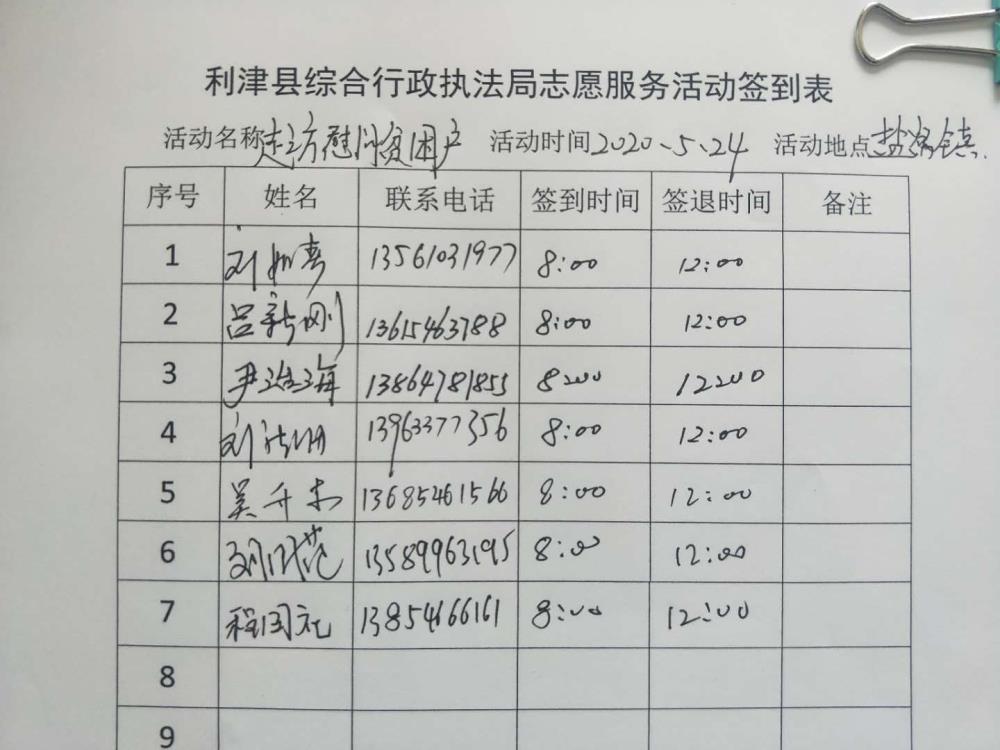 利津县综合行政执法局志愿服务活动签到表
活动名称走访慰问贫困户 活动时间2020、5、24 活动地点盐窝镇
序号 姓名 联系电话 签到时间 签退时间 备注
1 刘 13561031977 8:00 12:00
2 吕新刚 13615463788 8:00 12:00
3 尹 海 13864781855 8:00 12:00
4 刘 13963377356 8:00 12:00
5 吴升木 13685461566 8:00 12:00
6 13589963195 8:00 12:00
7 程国礼 13854666161 8:00 12:00
8
9